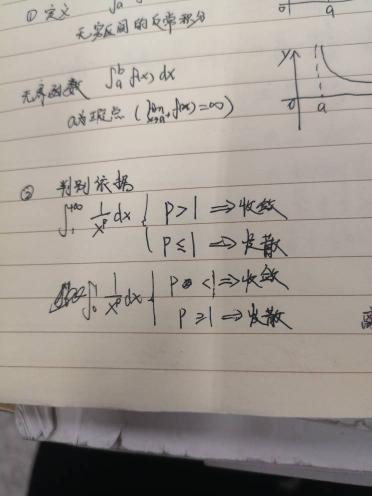 ① 定义
无穷区间的反常积分
y
无界函数 ∫_a^b f(x) dx
a为瑕点 (lim_{x→a⁺} f(x) = ∞)
0 a
② 判别依据
∫_1^{+∞} 1/x^p dx { p > 1 ⇒ 收敛
p ≤ 1 ⇒ 发散
∫_0^1 1/x^p dx { p < 1 ⇒ 收敛
p ≥ 1 ⇒ 发散